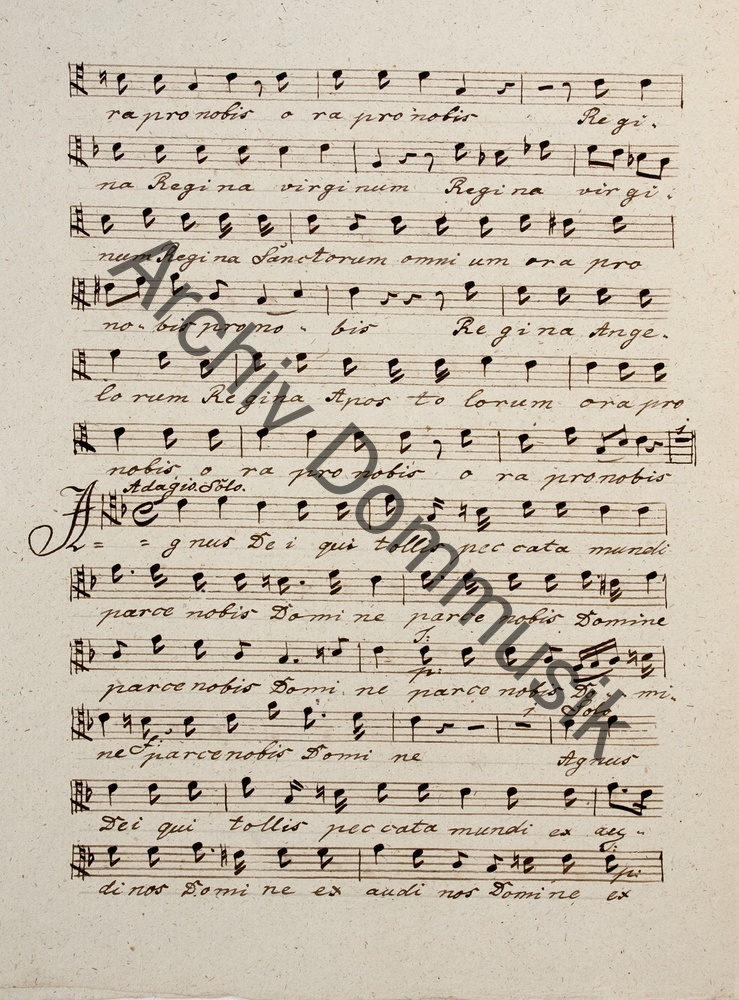 ra pro nobis o ra pro nobis Regi-
na Regina virginum Regina virgi-
num Regina Sanctorum omnium ora pro
no- bis pro no- bis Regina Ange-
lorum Regina Aposto lorum ora pro
nobis o ra pro nobis o ra pro nobis 1
Adagio. Solo.
A= =gnus Dei qui tollis peccata mundi
parce nobis Domine parce nobis Domine
f: p:
parce nobis Domi ne parce nobis Do- mi-
1 Solo
ne parce nobis Domi ne Agnus
f:
Dei qui tollis peccata mundi ex au-
f: p:
di nos Domine ex audi nos Domine ex
Archiv Dommusik